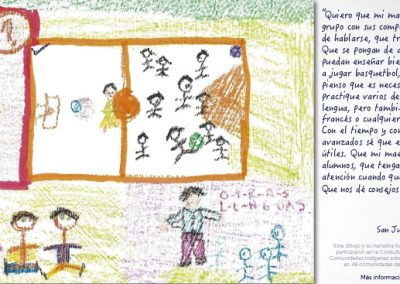 "Quiero que mi ma
grupo con sus comp
de hablarse, que tr
Que se pongan de a
puedan enseñar bie
a jugar basquetbol,
pienso que es neces
Practique varios de
lengua, pero tambi
francés o cualquier
Con el tiempo y co
avanzados sé que e
útiles. Que mi mae
alumnos, que teng
atención cuando qu
Que nos dé consejos
San Ju
Este dibujo y su narrativa fu
participaron en la Consult
Comunidades Indígenas sobr
en 49 comunidades de
Más informació
1
O-t-R-A-S
L-E-N-G-U-A-S